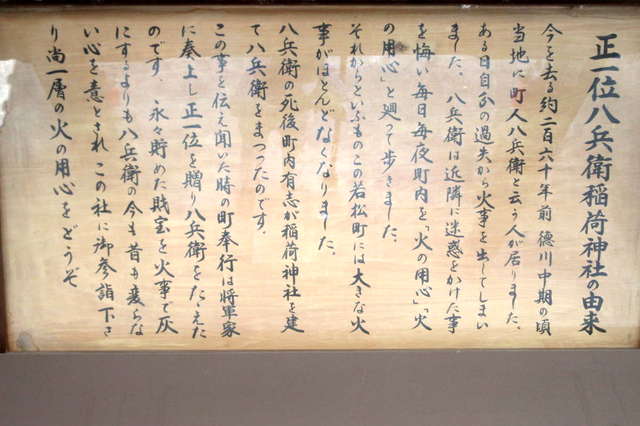 正一位八兵衛稲荷神社の由来
今を去る約二百六十年前徳川中期の頃
当地に町人八兵衛と云う人が居りました。
ある日自分の過失から火事を出してしまい
ました。八兵衛は近隣に迷惑をかけた事
を悔い毎日毎夜町内を「火の用心」「火
の用心」と廻って歩きました。
それからといふものこの若松町には大きな火
事がほとんどなくなりました。
八兵衛の死後町内有志が稲荷神社を建
て八兵衛をまつつたのです。
この事を伝え聞いた時の町奉行は将軍家
に奏上し正一位を贈り八兵衛をたゝえた
のです。永々貯めた財宝を火事で灰
にするよりも八兵衛の今も昔も変らな
い心を意とされこの社に御参詣下さ
り尚一層の火の用心をどうぞ